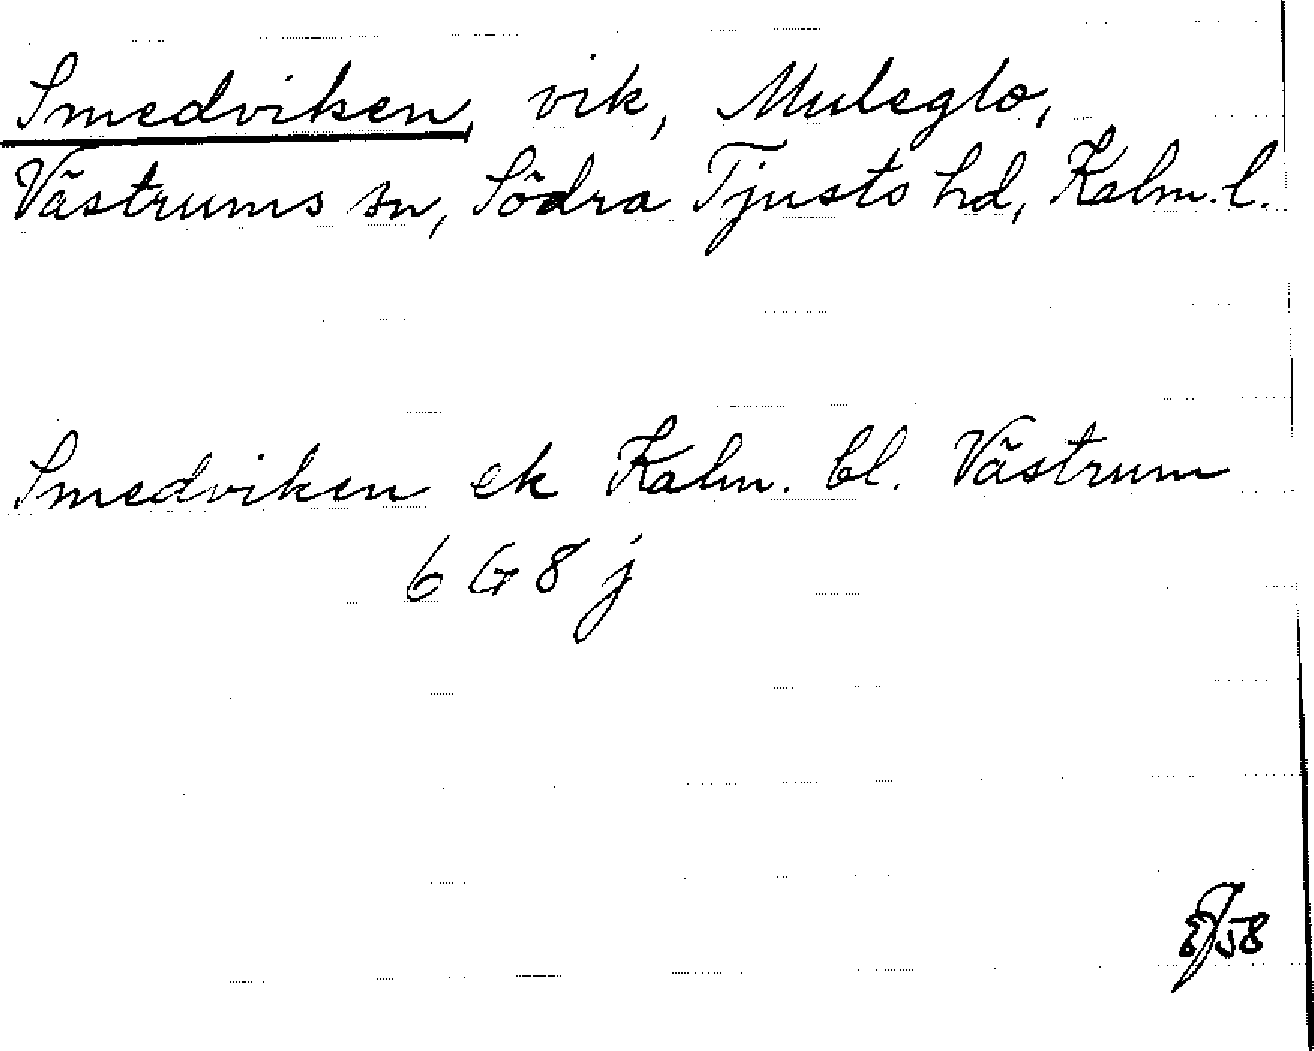 Smedviken, vik, Muleglo,
Västrums sn, Södra Tjusts hd, Kalm. l.
Smedviken ek Kalm. bl. Västrum
6 G 8 j
58